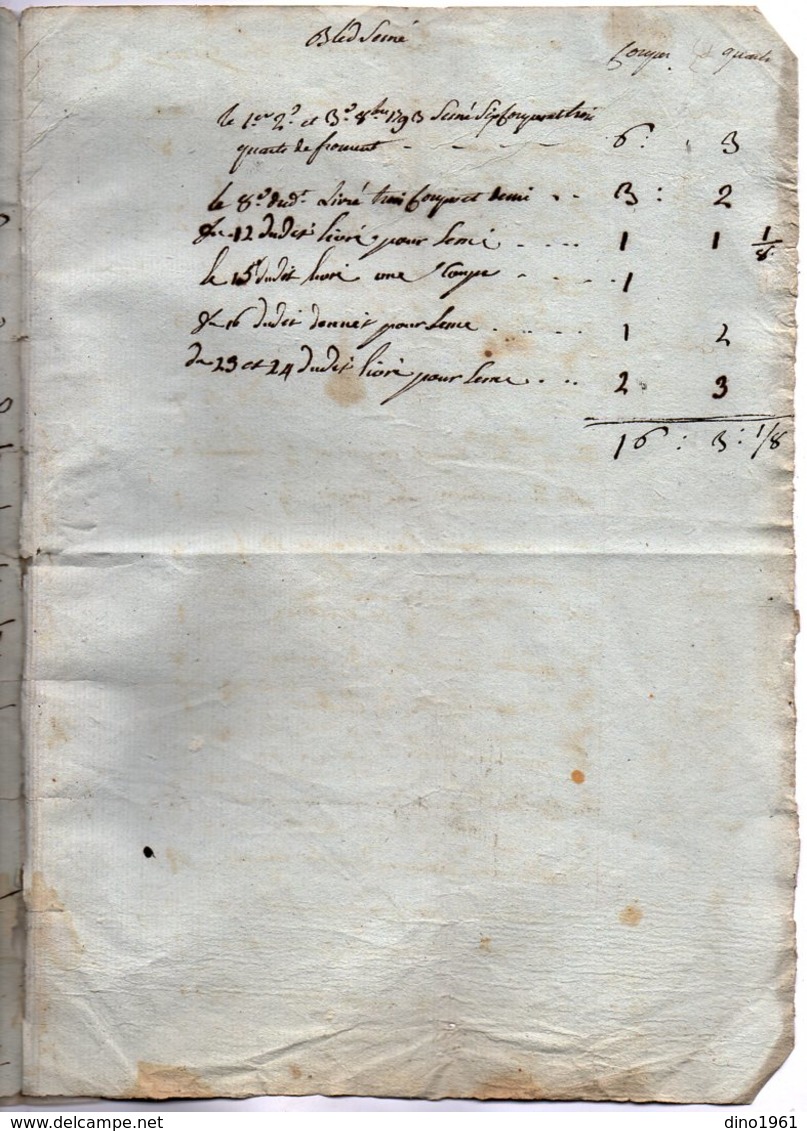 Bled Semé
Coupes & quarts
le 1er 2e et 3e 8bre 1793 Semé Six Coupes et trois
quarts de froment - - - - 6 : 3
le 8e dudt Livré trois Coupes et demi - - 3 : 2
Du 12 dudit livré pour Semé - - - - 1 1 1/8
le 15e dudit livré une Coupe - - - - 1
du 16 dudit donnet pour Seme - - - - 1 2
du 23 et 24 dudit livré pour Seme - - - 2 3
16 : 3 : 1/8
dino1961